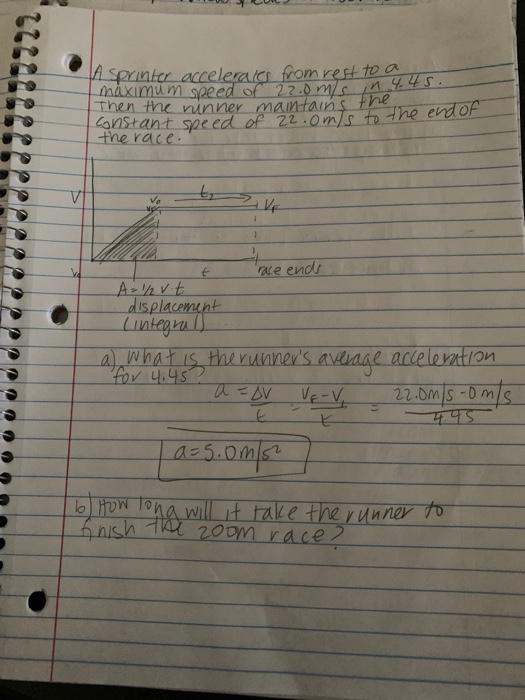 A sprinter accelerates from rest to a
maximum speed of 22.0 m/s in 4.4s.
Then the runner maintains the
constant speed of 22.0m/s to the end of
the race.
t₂
V
V₀
VF
t
race ends
A = 1/2 v·t
displacement
(integral)
a) what is the runner's average acceleration
for 4.4s?
a = ΔV/t = VF-V₁/t = 22.0m/s - 0 m/s/4.4s
a = 5.0 m/s²
b) How long will it take the runner to
finish the 200m race?